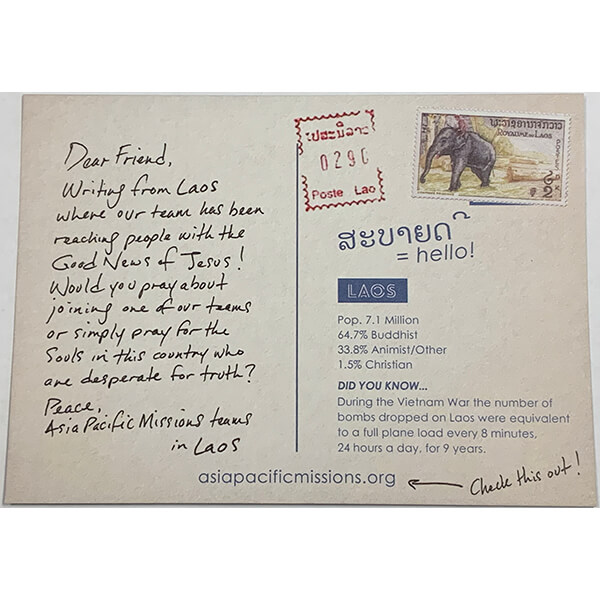 Dear Friend,
Writing from Laos
where our team has been
reaching people with the
Good News of Jesus!
Would you pray about
joining one of our teams
or simply pray for the
Souls in this country who
are desperate for truth?
Peace,
Asia Pacific Missions teams
in Laos
0290
Poste Lao
ພຣະຣາຊອານາຈັກລາວ
ROYAUME DU LAOS
ສະບາຍດີ
= hello!
LAOS
Pop. 7.1 Million
64.7% Buddhist
33.8% Animist/Other
1.5% Christian
DID YOU KNOW...
During the Vietnam War the number of
bombs dropped on Laos were equivalent
to a full plane load every 8 minutes,
24 hours a day, for 9 years.
asiapacificmissions.org
Check this out!